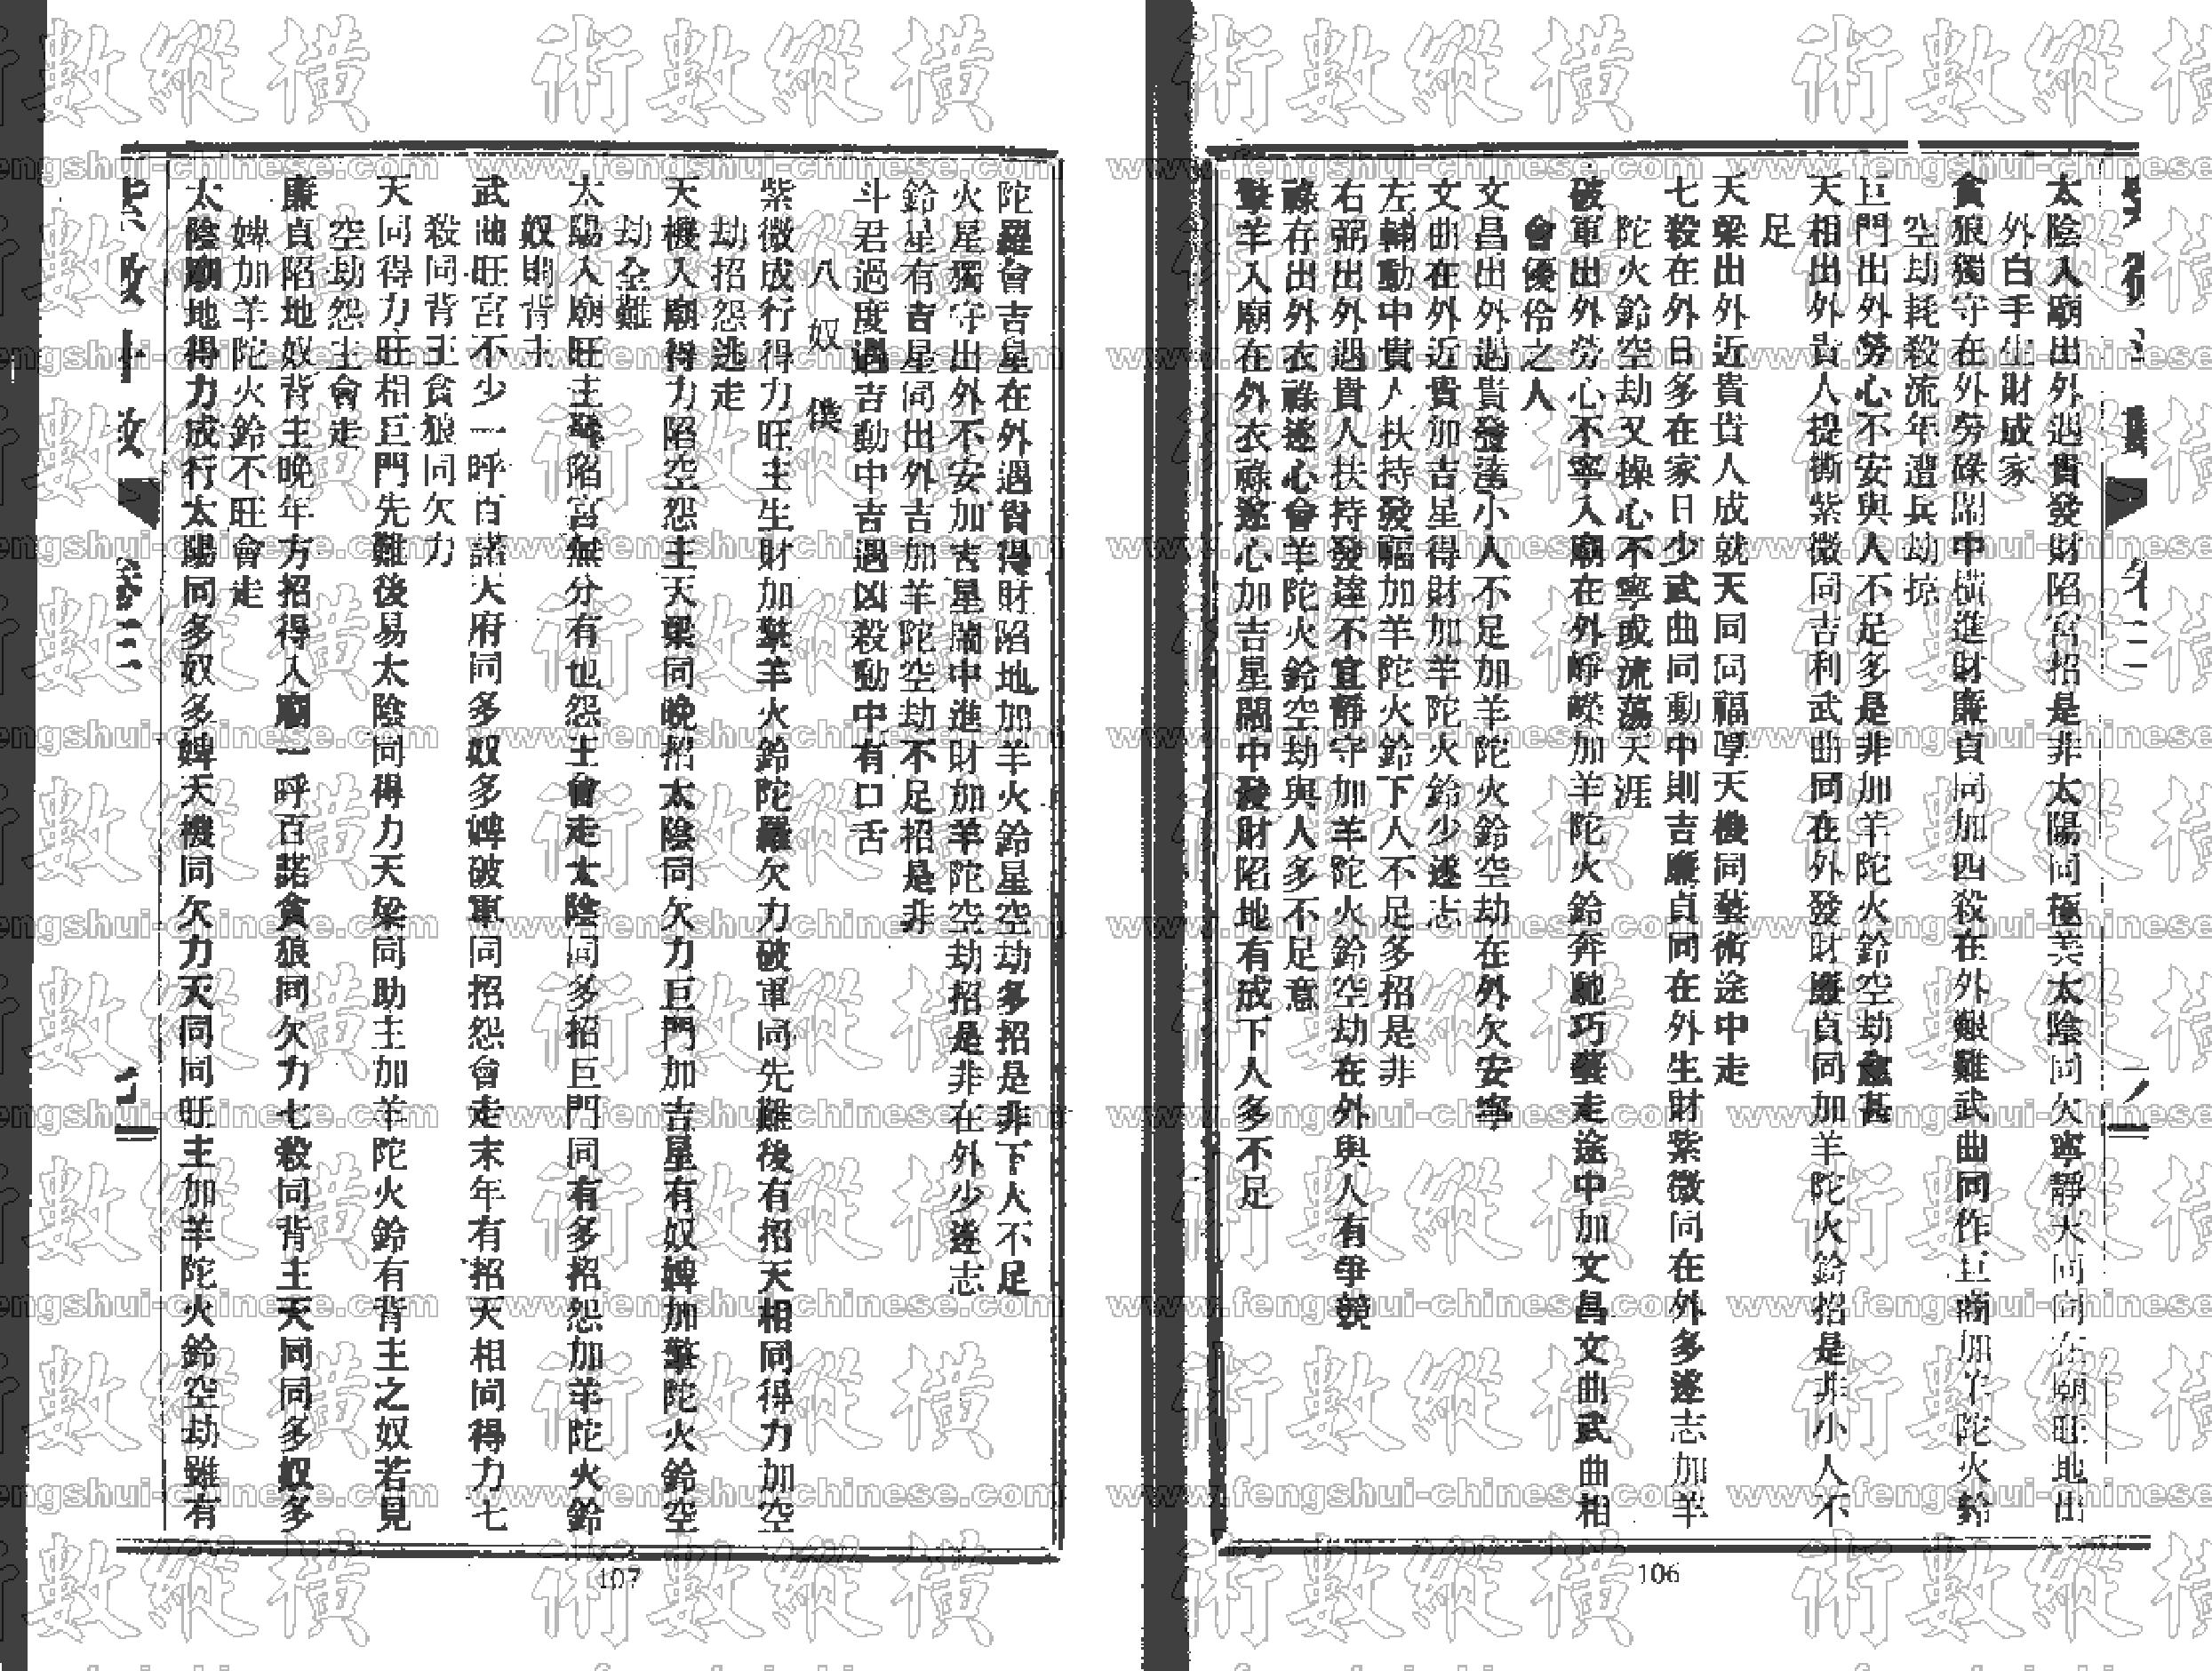 太陰入廟出外遇貴發財陷宮招是非太陽同極美太陰同欠寧靜天同同在廟旺地出
外白手生財成家
貪狼獨守在外勞碌鬧中橫進財廉貞同加四殺在外艱難武曲同作巨商加羊陀火鈴
空劫耗殺流年遭兵劫掠
巨門出外勞心不安與人不足多是非加羊陀火鈴空劫愈甚
天相出外貴人提撕紫微同吉利武曲同在外發財廉貞同加羊陀火鈴招是非小人不
足
天梁出外近貴貴人成就天同同福厚天機同藝術途中走
七殺在外日多在家日少武曲同動中則吉廉貞同在外生財紫微同在外多遂志加羊
陀火鈴空劫又操心不寧或流蕩天涯
破軍出外勞心不寧入廟在外崢嶸加羊陀火鈴奔馳巧藝走途中加文昌文曲武曲相
會優伶之人
文昌出外遇貴發達小人不足加羊陀火鈴空劫在外欠安寧
文曲在外近貴加吉星得財加羊陀火鈴少遂志
左輔動中貴人扶持發福加羊陀火鈴下人不足多招是非
右弼出外遇貴人扶持發達不宜靜守加羊陀火鈴空劫在外與人有爭競
祿存出外衣祿遂心會羊陀火鈴空劫與人多不足意
擎羊入廟在外衣祿遂心加吉星鬧中發財陷地有成下人多不足
106
陀羅會吉星在外遇貴得財陷地加羊火鈴星空劫多招是非下人不足
火星獨守出外不安加吉星鬧中進財加羊陀空劫招是非在外少遂志
鈴星有吉星同出外吉加羊陀空劫不足招是非
斗君過度遇吉動中吉遇凶殺動中有口舌
八奴僕
紫微成行得力旺主生財加擎羊火鈴陀羅欠力破軍同先難後有招天相同得力加空
劫招怨逃走
天機入廟得力陷空怨主天梁同晚招太陰同欠力巨門加吉星有奴婢加擎陀火鈴空
劫全難
太陽入廟旺主發陷宮無分有也怨主會走太陰同多招巨門同有多招怨加羊陀火鈴
奴則背主
武曲旺宮不少一呼百諾天府同多奴多婢破軍同招怨會走末年有招天相同得力七
殺同背主貪狼同欠力
天同得力旺相巨門先難後易太陰同得力天梁同助主加羊陀火鈴有背主之奴若見
空劫怨主會走
廉貞陷地奴背主晚年方招得入廟一呼百諾貪狼同欠力七殺同背主天同同多奴多
婢加羊陀火鈴不旺會走
太陰廟地得力成行太陽同多奴多婢天機同欠力天同同旺主加羊陀火鈴空劫雖有
107
術數縱橫
www.fengshui-chinese.com